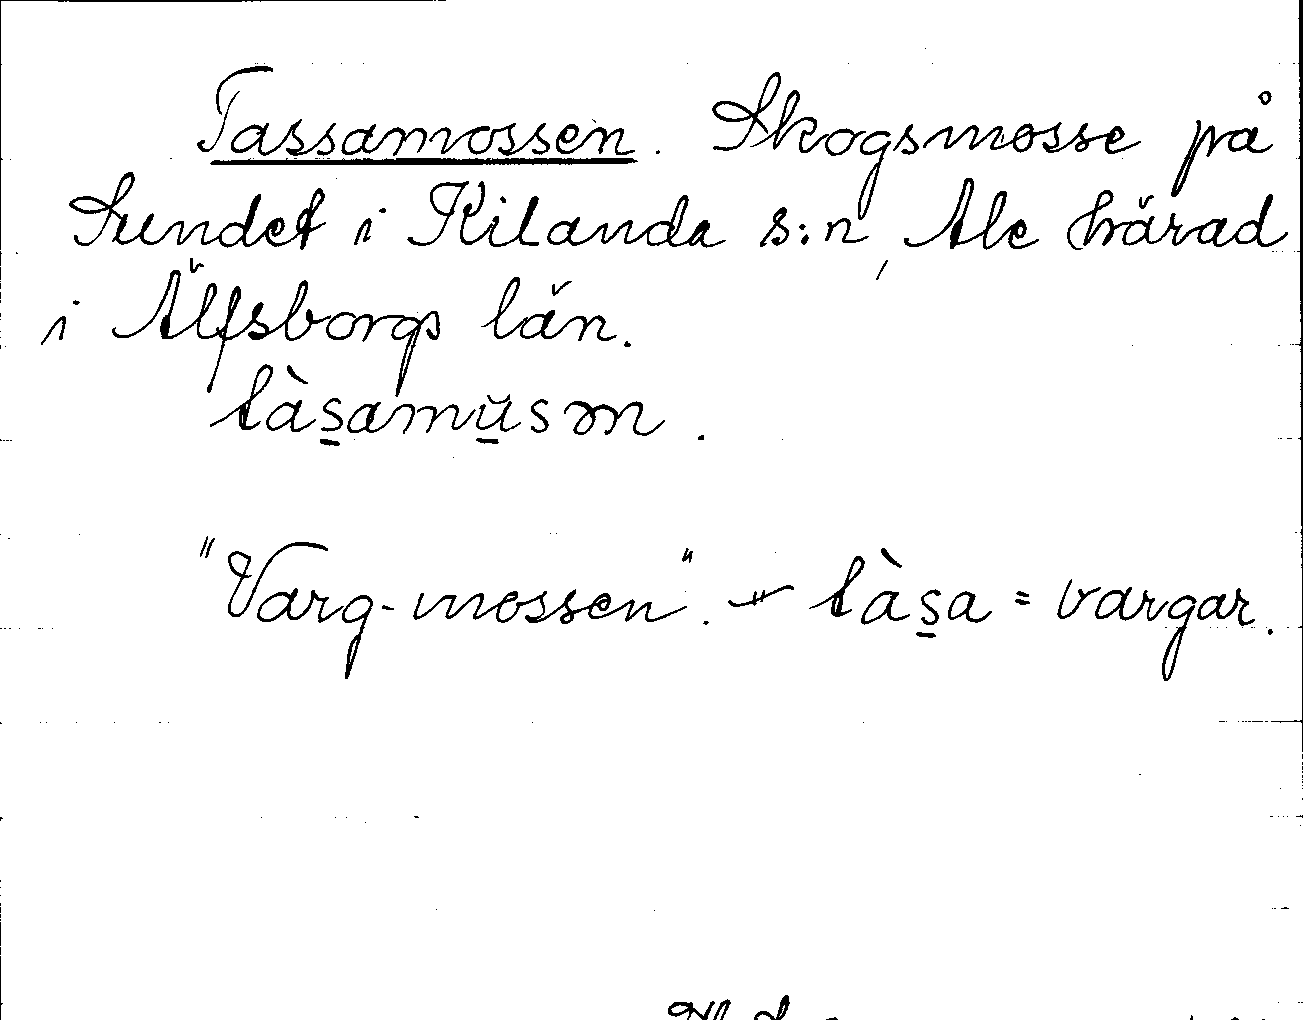 Tassamossen. Skogsmosse på
Sundet i Kilanda s:n, Ale härad
i Älfsborgs län.
tàs̱amu̱̇sən.
"Varg-mossen". — tàs̱a = vargar.